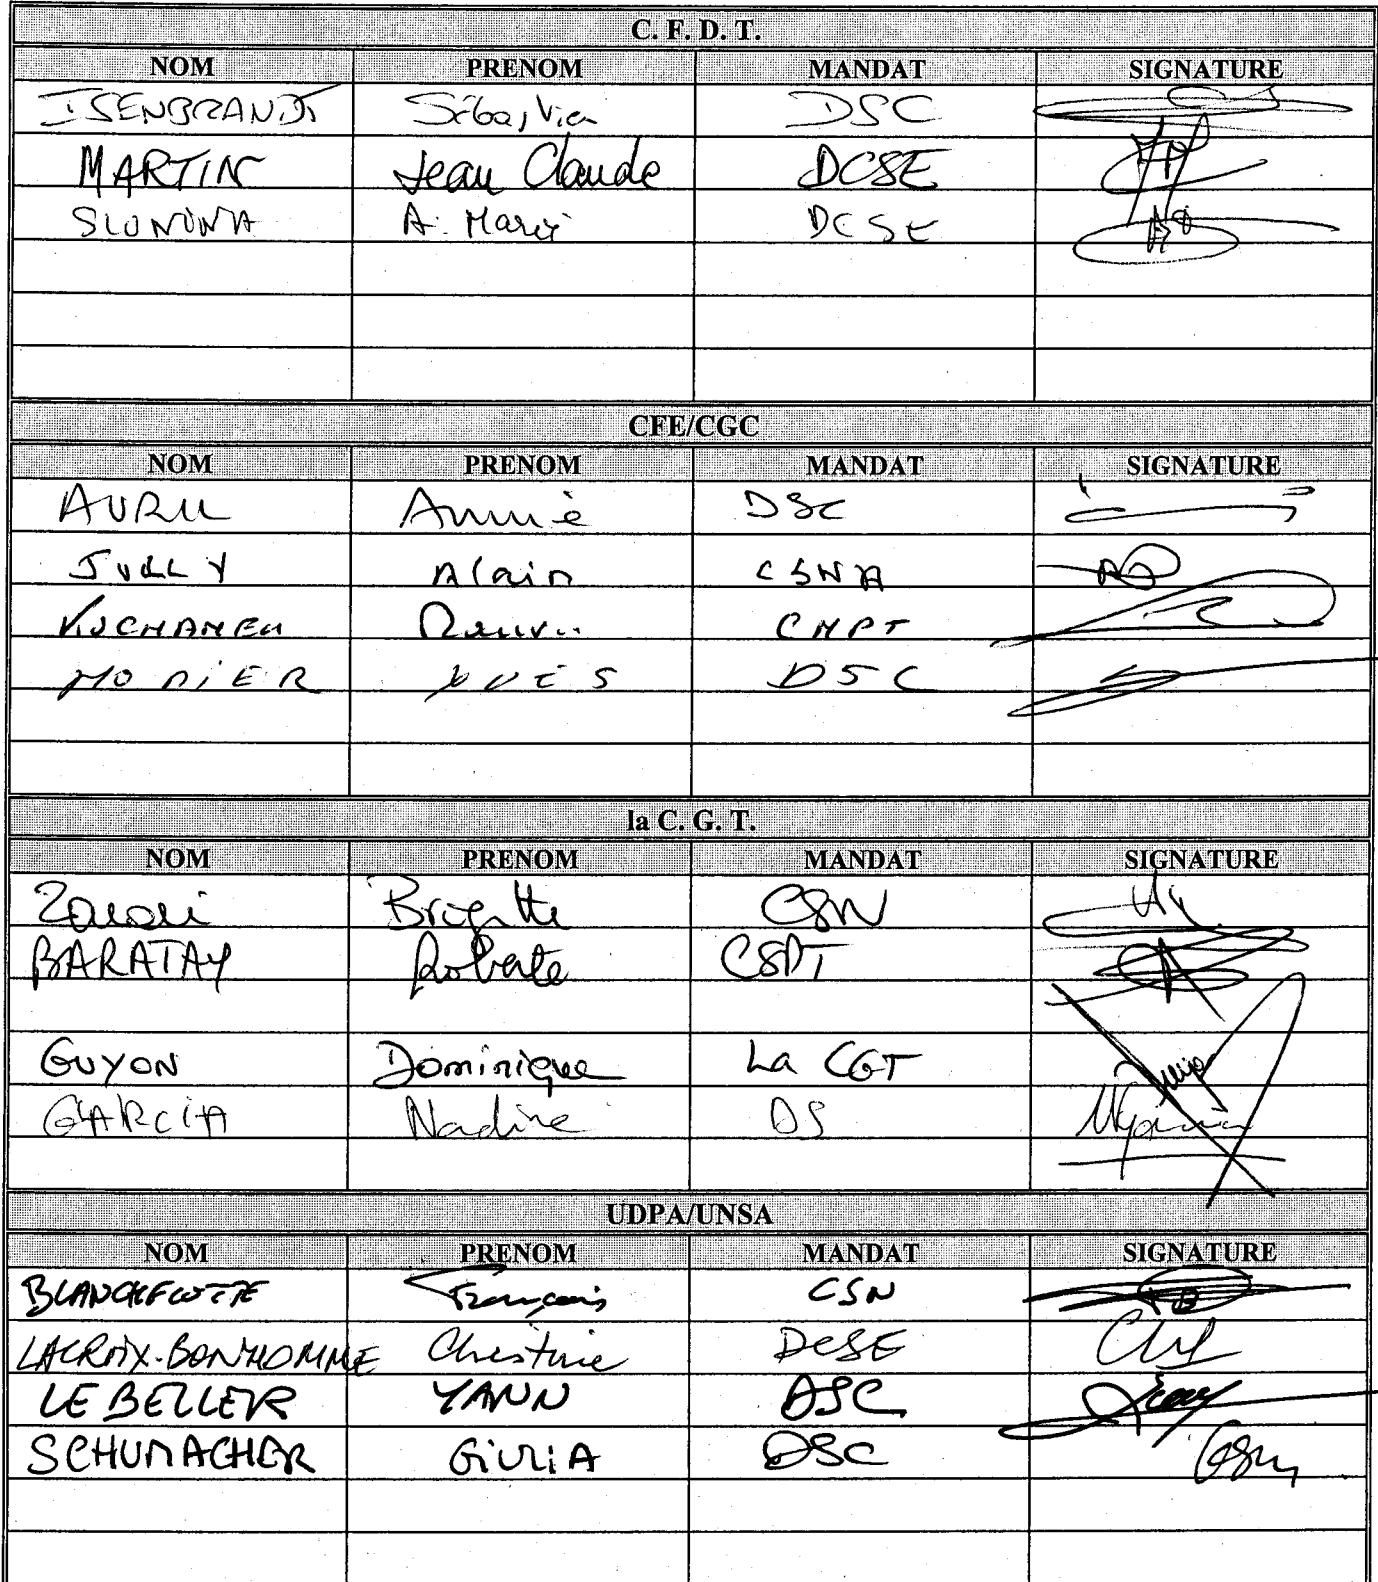 C. F. D. T.
NOM PRENOM MANDAT SIGNATURE
ISENBRANDT Sébastien DSC
MARTIN Jean Claude DCSE
SLONINA A. Marie DCSE
CFE/CGC
NOM PRENOM MANDAT SIGNATURE
AVRIL Annie DSC
JULLY Alain CSNA
CNPT
MONIER YVES DSC
la C. G. T.
NOM PRENOM MANDAT SIGNATURE
Brigitte CSN
BARATAY Roberte CSPT
GUYON Dominique La CGT
GARCIA Nadine DS
UDPA/UNSA
NOM PRENOM MANDAT SIGNATURE
BLANCHECOTTE François CSN
LACROIX-BONHOMME Christine DCSE
LE BELLER YANN DSC
SCHUMACHER GIULIA DSC